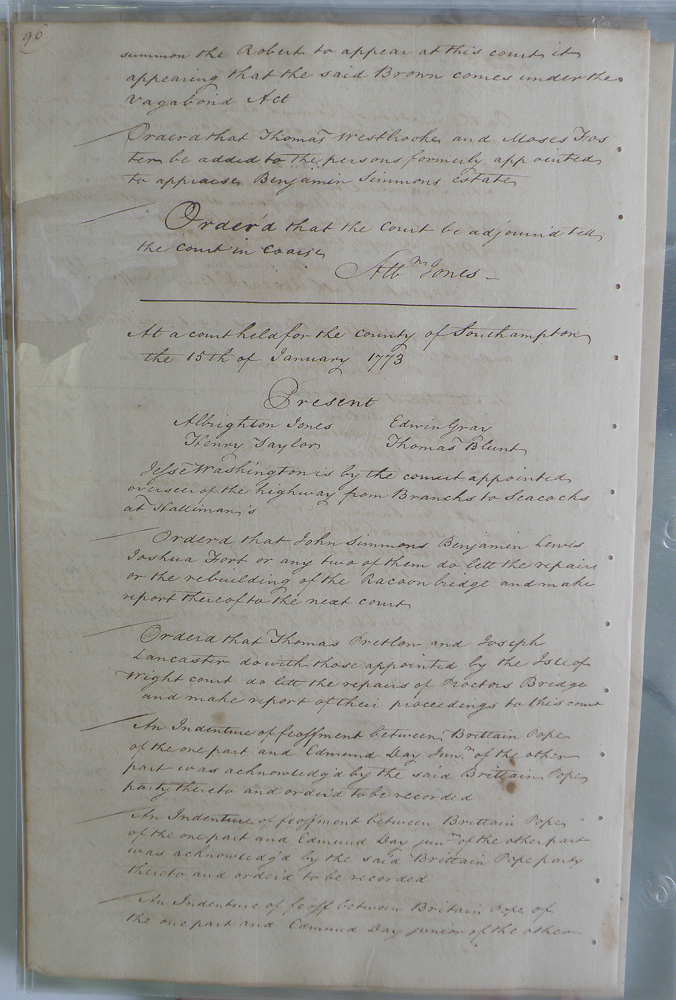 96
summon the Robert to appear at this court it
appearing that the said Brown comes under the
Vagabond Act
Orderd that Thomas Westbrooke and Moses Fos
ter be added to the persons formerly appointed
to appraise Benjamin Simmons Estate
Order'd that the Court be adjournd till
the court in Course
Alb.m Jones
At a court held for the County of Southampton
the 15th of January 1773
Present
Albrighton Jones Edwin Gray
Henry Taylor Thomas Blunt
Jesse Washington is by the court appointed
overseer of the highway from Branchs to Seacocks
at Halliman's
Orderd that John Simmons Benjamin Lewis
Joshua Fort or any two of them do lett the repairs
or the rebuilding of the Racoon bridge and make
report thereof to the next court
Orderd that Thomas Pretlow and Joseph
Lancaster do with those appointed by the Isle of
Wight court do lett the repairs of Proctors Bridge
and make report of their proceedings to this court
An Indenture of feoffment between Brittain Pope
of the one part and Edmund Day Jun.r of the other
part was acknowledg'd by the said Brittain Pope
party thereto and order'd to be recorded
An Indenture of feoffment between Brittain Pope
of the one part and Edmund Day jun.r of the other part
was acknowledg'd by the said Brittain Pope party
thereto and order'd to be recorded
An Indenture of feoff between Britain Pope of
the one part and Edmund Day junior of the other